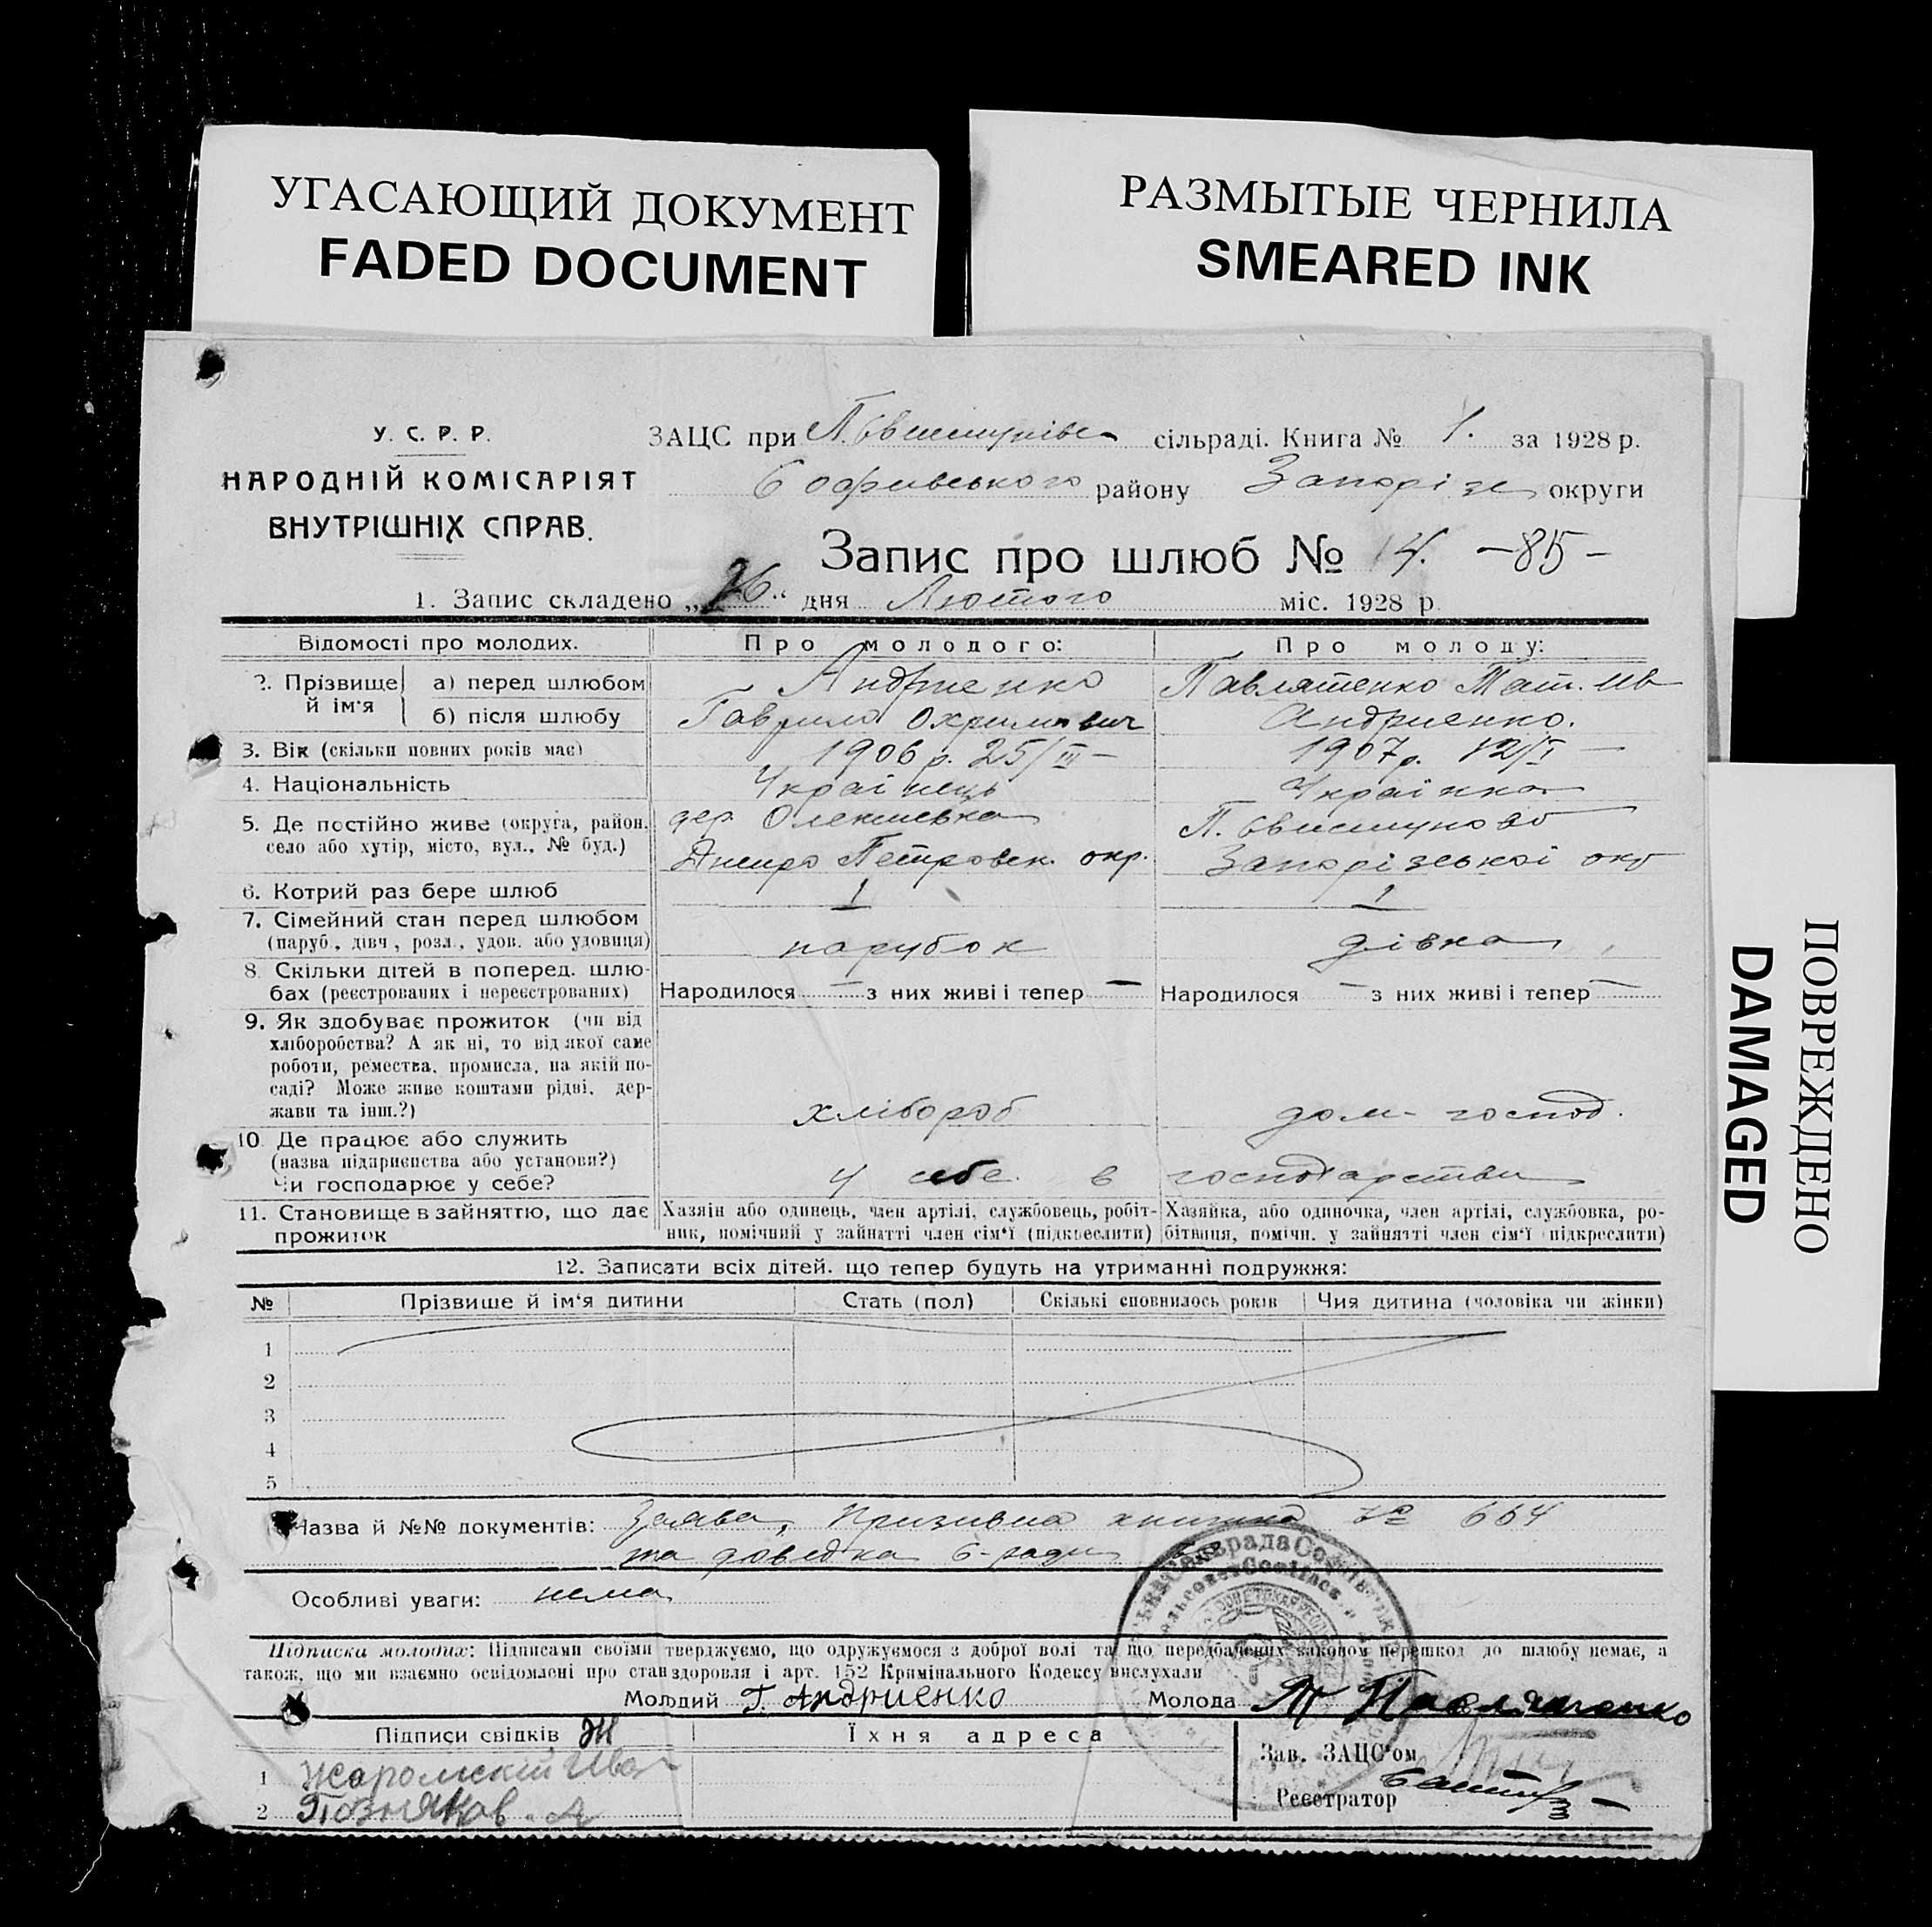 УГАСАЮЩИЙ ДОКУМЕНТ
FADED DOCUMENT
РАЗМЫТЫЕ ЧЕРНИЛА
SMEARED INK
У. С. Р. Р.
НАРОДНІЙ КОМІСАРІЯТ
ВНУТРІШНІХ СПРАВ.
ЗАЦС при П. Свистунівс сільраді. Книга № 1. за 1928 р.
Софиевського району Запоріз округи
Запис про шлюб № 14. —85—
1. Запис складено „26“ дня Лютого міс. 1928 р
Відомості про молодих.
Про молодого:
Про молоду:
2. Прізвище й ім'я
а) перед шлюбом Андриенко Павлятенко Тат. Ив
б) після шлюбу Гаврило Охримович Андриенко.
3. Вік (скільки повних років має) 1906 р. 25/III — 1907 р. 12/I —
4. Національність Українець Українка
5. Де постійно живе (округа, район, село або хутір, місто, вул., № буд.)
дер. Олексиевка П. Свистуново
Днипро Петровск. окр. Запорізської окр
6. Котрий раз бере шлюб 1 1
7. Сімейний стан перед шлюбом
(паруб., дівч, розл., удов. або удовиця) парубок дівка
8. Скільки дітей в поперед. шлю-
бах (реєстрованих і нереєстрованих) Народилося — з них живі і тепер — Народилося — з них живі і тепер —
9. Як здобуває прожиток (чи від
хліборобства? А як ні, то від якої саме
роботи, ремества, промисла, на якій по-
саді? Може живе коштами рідні, дер-
жави та інш.?) хлібороб дом- господ.
10. Де працює або служить
(назва підприєнства або установи?) у себе. в господарстви
Чи господарює у себе?
11. Становище в зайняттю, що дає прожиток
Хазяін або одинець, член артілі, службовець, робіт-
ник, помічний у зайнятті член сім'ї (підкреслити)
Хазяйка, або одиночка, член артілі, службовка, ро-
бітниця, помічн. у зайнятті член сім'ї підкреслити)
12. Записати всіх дітей, що тепер будуть на утриманні подружжя:
№ Прізвише й ім'я дитини Стать (пол) Скількі сповнилось років Чия дитина (чоловіка чи жінки)
1
2
3
4
5
Назва й №№ документів: Заява, Призивна книжка № 664
та довидка С-ради
Особливі уваги: нема
Підписка молодих: Підписами своїми тверджуємо, що одружуємося з доброї волі та що передбачених законом перешкод до шлюбу немає, а
також, що ми взаємно освідомлені про стан здоровля і арт. 152 Кримінального Кодексу вислухали
Молодий Г. Андриенко Молода Т Павлятенко
Підписи свідків Їхня адреса
1
2 Позняков. А
Зав. ЗАЦС'ом
Реєстратор
ПОВРЕЖДЕНО
DAMAGED